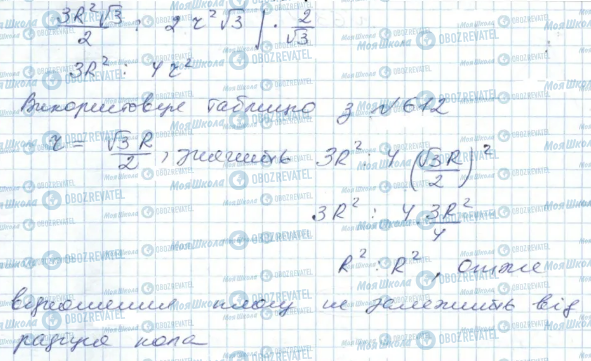 3R²√3/2 : 2r²√3 | · 2/√3
3R² : 4r²
Використовує таблицю з №612
r = √3R/2, значить 3R² : 4(√3R/2)²
3R² : 4 3R²/4
R² : R², отже
відношення площ не залежить від
радіуса кола